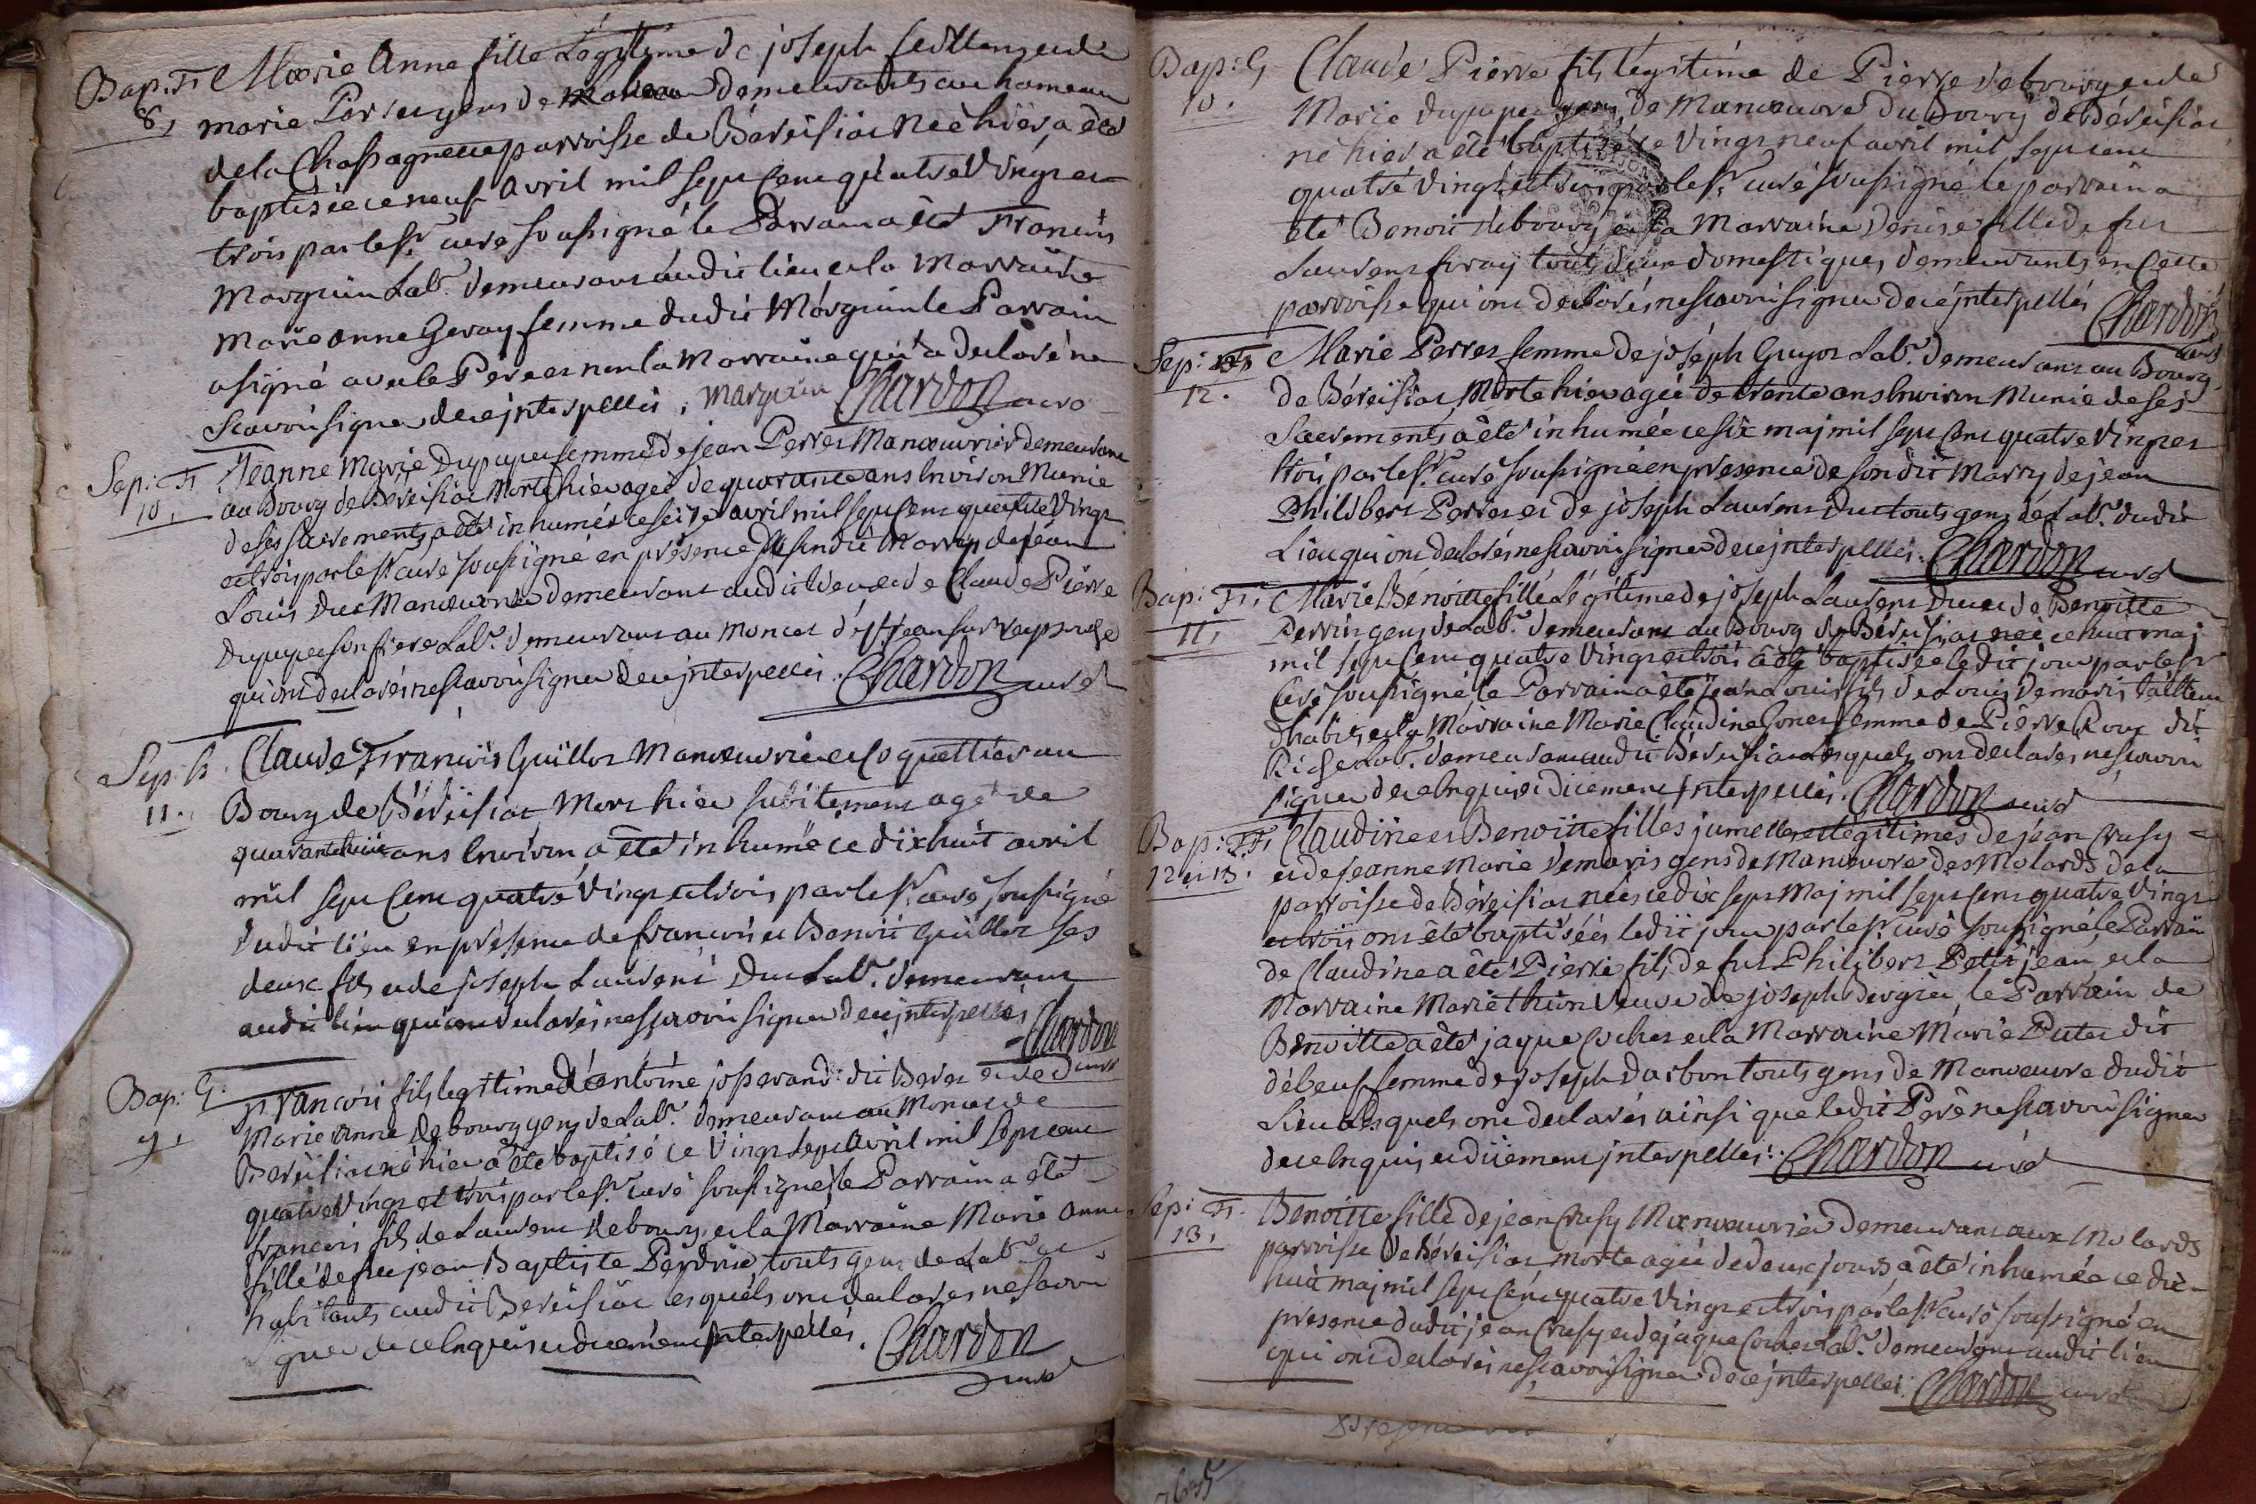 Bap: F. Marie Anne fille Légitime de joseph feuillens et de
8, marie Perret gens de demeurants au hameau
de la Chassagne parroisse de Béréisiat Née hier, a été
baptisée ce neuf avril mil sept cent quatre Vingt et
trois par le sr. curé soussigné le Parrain a été Francois
Marguin Labr. demeurant audit lieu et la Marraine
Marie anne Geray femme dudit Marguin le Parrain
a signé avec le Pere et non la Marraine qui a declaré ne
scavoir signer de ce jnterpellés, Marguin Chardon curé
Sep: F. Jeanne Marie Dupuper femme de jean Perret Manœuvrier demeurant
10, au Bourg de Béréisiat Morte hier agée de quarante ans Environ Munie
de ses sacrements, a été inhumée ce seize avril mil sept Cent quatre Vingt
et trois par le sr. curé soussigné en présence de sondit Marry de jean
Louis Duc Manœuvrier demeurant audit lieu et de Claude Pierre
Dupuper son frere Labr. demeurant au Moncet de st jean sur reyssouze
qui ont declarés ne scavoir signer de ce jnterpellés. Chardon curé
Sep: G. Claude Francois Guillot Manœuvrier et Coquettier au
11. Bourg de Béréisiat Mort hier subitement agé de
quarante huit ans Environ a été inhumé ce dix huit avril
mil sept Cent quatre Vingt et trois par le sr. curé soussigné
dudit lieu en présence de francois et Benoit Guillot ses
deux fils et de joseph Laurent Duc Labr. demeurant
audit lieu qui ont declarés ne scavoir signer de ce jnterpellés
Chardon curé
Bap: G. Francois fils legitime d'antoine josserand dit Beret et de
9, Marie Anne Debourg gens de Labr. demeurant au Moncet de
Béréisiat né hier a été baptisé ce Vingt sept avril mil sept cent
quatre Vingt et trois par le sr. curé soussigné, le Parrain a été
francois fils de Laurent Debourg, et la Marraine Marie Anne
fille de feu jean Baptiste Perdrix touts gens de Labr. et
habitants audit Béréisiat lesquels ont declarés ne scavoir
signer de ce Enquis et duement jnterpellés. Chardon
curé
Bap: G, Claude Pierre fils légitime de Pierre debourg et de
10. Marie dupuper gens de Manœuvre du Bourg de Béréisiat
né hier a été baptisé ce Vingt neuf avril mil sept cent
quatre Vingt et trois par le sr. curé soussigné le parrain a
été Benoit debourg et la Marraine Denise fille de feu
Laurent firay touts deux domestiques demeurants en Cette
parroisse qui ont declarés ne scavoir signer de ce jnterpellés Chardon
curé
Sep: F. Marie Perret femme de joséph Guyot Labr. demeurant au Bourg
12. de Béréisiat Morte hier agée de trente ans Environ Munie de ses
Sacrements a été inhumée ce six maj mil sept Cent quatre Vingt et
trois par le sr. curé soussigné en presence de sondit Marry de jean
Philibert Perret et de joseph Laurent Duc touts gens de Labr. dudit
Lieu qui ont declarés ne scavoir signer de ce jnterpellés. Chardon curé
Bap: F, Marie Benoitte fille Légitime de joseph Laurent Duc et de Benoitte
11, Perrin gens de Labr. demeurant au Bourg de Béréisiat née ce huit maj
mil sept Cent quatre Vingt et trois a été baptisée ledit jour par le sr
Curé soussigné le Parrain a été jean Louis fils de Louis demaris tailleur
d'habits, et la Marraine Marie Claudine Gonet femme de Pierre Roux dit
Riche Labr. demeurant audit Béréisiat lesquels ont declarés ne scavoir
signer de ce Enquis et duement jnterpellés. Chardon curé
Bap: FF, Claudine et Benoitte filles jumelles et legitimes de jean Crusy
12 et 13. et de jeanne Marie demaris gens de Manœuvre des Molards de la
parroisse de Béréisiat nées ce dix sept Maj mil sept Cent quatre Vingt
et trois ont été baptisées ledit jour par le sr. curé soussigné, le Parrain
de Claudine a été Pierre fils de feu Philibert Petit jean, et la
Marraine Marie thien Veuve de joseph , le Parrain de
Benoitte a été jaque Cochet et la Marraine Marie Putet dit
débeuf femme de joseph Darbon touts gens de Manœuvre dudit
Lieu Lesquels ont declarés ainsi que ledit Pere ne scavoir signer
de ce Enquis et duement jnterpellés. Chardon curé
Sep: F. Benoitte fille de jean Crusy Manœuvrier demeurant aux Molards
13, parroisse de Béréisiat morte agée de deux jours a été inhumée ce dix
huit maj mil sept Cent quatre Vingt et trois par le sr. curé soussigné en
présence dudit jean Crusy et de jaque Cochet Labr. demeurant audit lieu
qui ont declarés ne scavoir signer de ce jnterpellés. Chardon curé